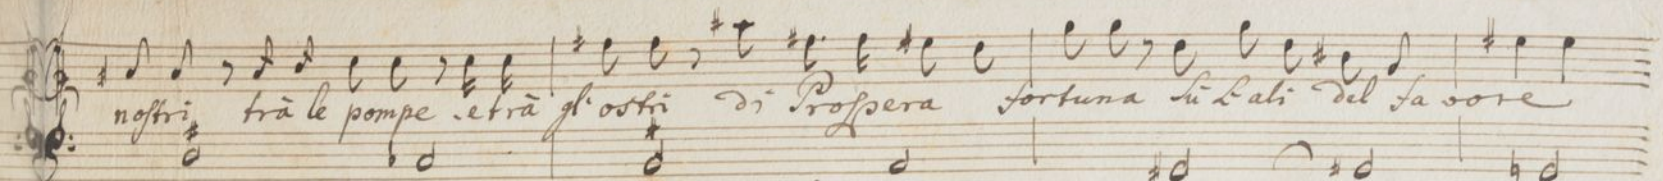 nostri trà le pompe e trà gl' ostri di Prospera fortuna sù l'ali del favore